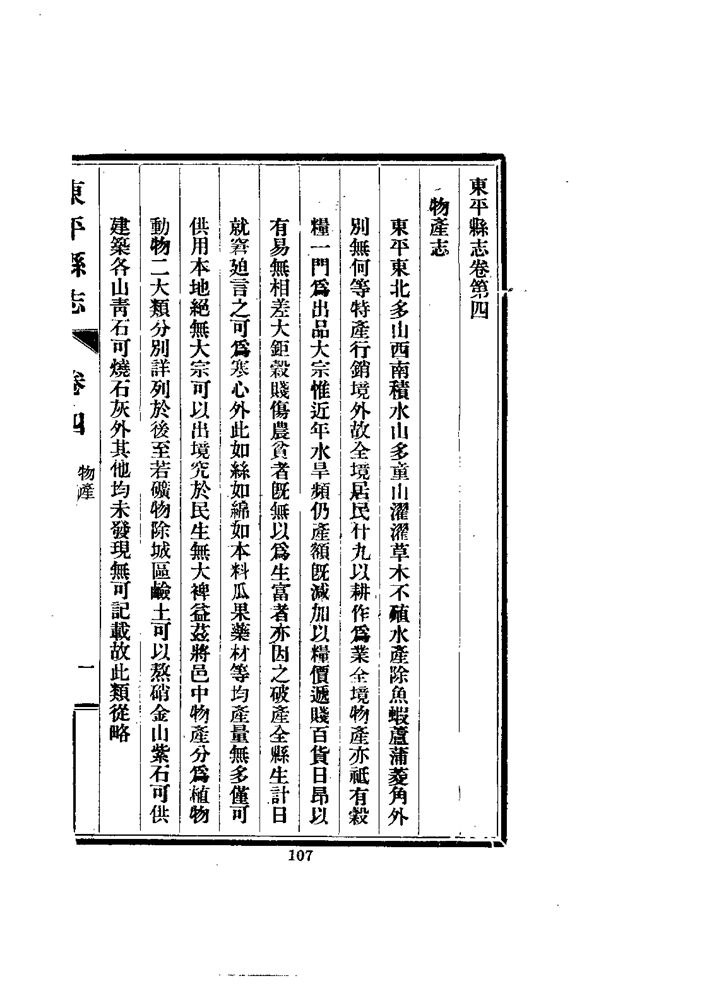 東平縣志卷第四
物產志
東平東北多山西南積水山多童山濯濯草木不殖水產除魚蝦蘆蒲菱角外
別無何等特產行銷境外故全境居民什九以耕作爲業全境物產亦祇有穀
糧一門爲出品大宗惟近年水旱頻仍產額旣減加以糧價遞賤百貨日昂以
有易無相差大鉅穀賤傷農貧者旣無以爲生富者亦因之破產全縣生計日
就窘廹言之可爲寒心外此如絲如綿如本料瓜果藥材等均產量無多僅可
供用本地絕無大宗可以出境究於民生無大裨益茲將邑中物產分爲植物
動物二大類分別詳列於後至若礦物除城區鹼土可以熬硝金山紫石可供
建築各山靑石可燒石灰外其他均未發現無可記載故此類從略
東平縣志
卷四
物產
一
107